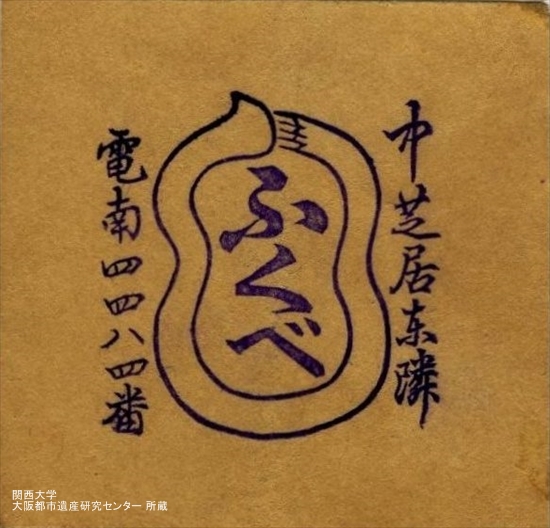 中芝居東隣
ふくべ
電南四四八四番
関西大学
大阪都市遺産研究センター 所蔵